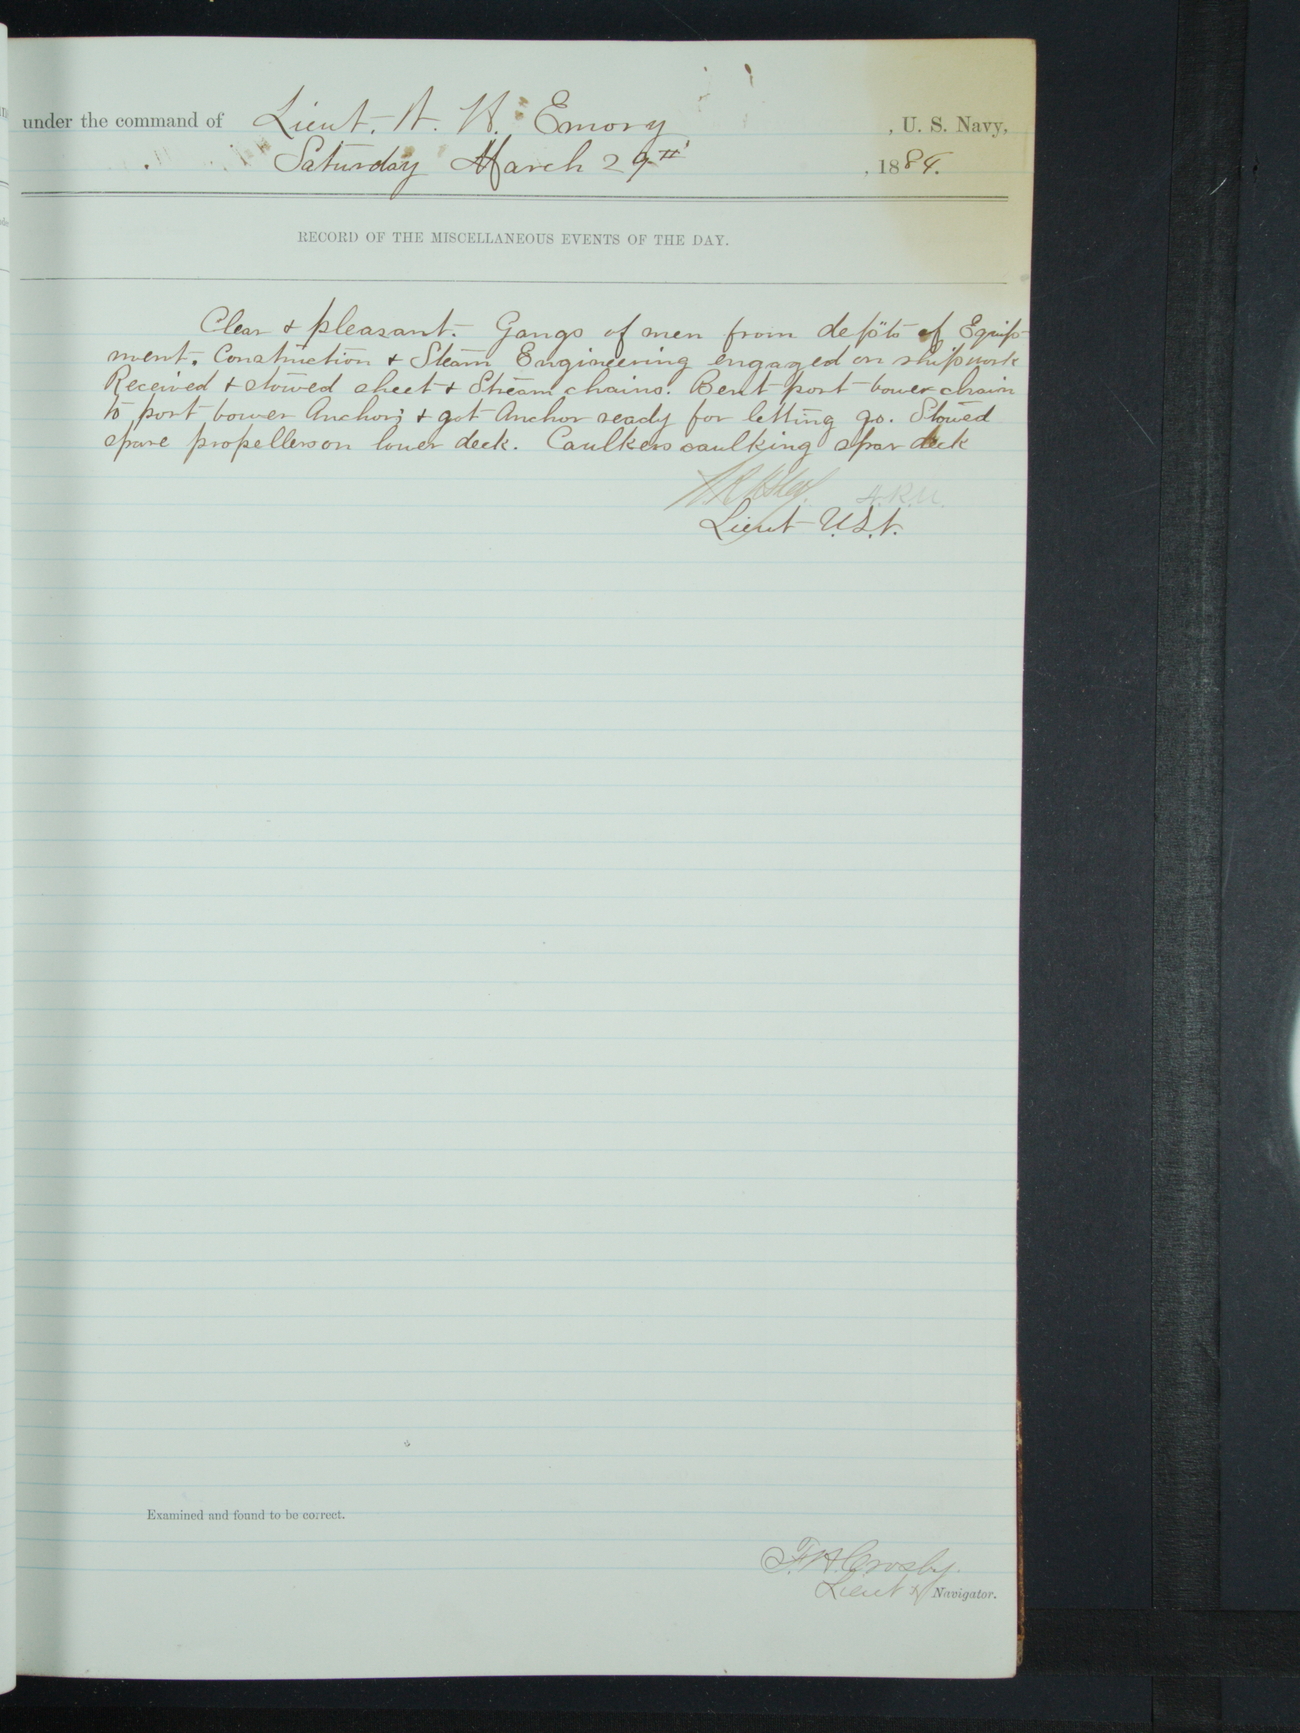 under the command of Lieut. W. H. Emory, U. S. Navy,
Saturday March 29th, 1884.
RECORD OF THE MISCELLANEOUS EVENTS OF THE DAY.
Clear & pleasant. Gangs of men from depôts of Equip-
ment. Construction & Steam Engineering engaged on ship work
Received & stowed sheet & Stream chains. Bent port bower chain
to port bower Anchor; & got Anchor ready for letting go. Stowed
spare propellers on lower deck. Caulkers caulking spar deck
Lieut U.S.N.
Examined and found to be correct.
F. H. Crosby.
Lieut & Navigator.